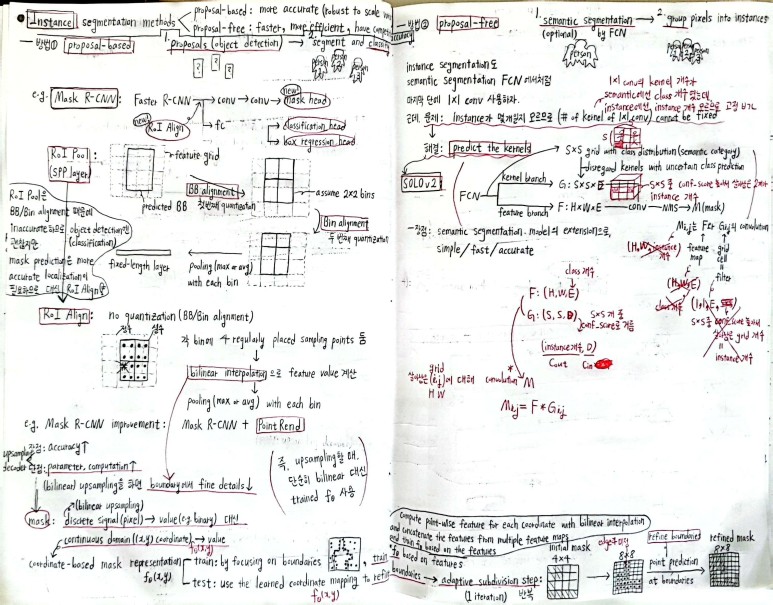 Instance segmentation methods
proposal-based : more accurate (robust to scale
proposal-free : faster, more efficient, have
방법① proposal-based : 1. proposals (object detection) → 2. segment and
person 1 person 2 person 3
e.g. Mask R-CNN : Faster R-CNN → conv → conv → mask head
new!
new!
RoI Align
fc
classification head
box regression head
RoI Pool :
(SPP layer)
feature grid
predicted BB
BB alignment
첫번째 quantization
assume 2x2 bins
Bin alignment
두 번째 quantization
RoI Pool은
BB/Bin alignment 때문에
inaccurate하므로 object detection엔
(classification)
괜찮지만
mask prediction은 more
accurate localization이
필요하므로 대신 RoI Align
fixed-length layer
pooling (max or avg)
with each bin
RoI Align : no quantization (BB/Bin alignment)
각 bin에 4 regularly placed sampling points 둠
bilinear interpolation으로 feature value 계산
pooling (max or avg) with each bin
e.g. Mask R-CNN improvement : Mask R-CNN + Point Rend
upsampling
decoder
장점 : accuracy↑
단점 : parameter, computation↑
(bilinear) upsampling을 하면 boundary에서 fine details↓
(즉, upsampling할 때,
단순히 bilinear 대신
trained fθ 사용)
(bilinear upsampling)
mask : discrete signal (pixel) → value (e.g. binary) 대신
continuous domain ((x,y) coordinate) → value
fθ(x,y)
coordinate-based mask representation
fθ(x,y)
train : by focusing on boundaries
test : use the learned coordinate mapping to refine
fθ(x,y)
방법② proposal-free
1. semantic segmentation → 2. group pixels into instances
(optional) by FCN
person
person 1 person 2 person 3
instance segmentation도
semantic segmentation FCN에서처럼
마지막 단에 1x1 conv 사용하자.
1x1 conv의 kernel 개수가
semantic에선 class 개수였는데
instance에선 instance 개수
근데, 문제 : instance가 몇개인지 모르므로 (# of kernel of 1x1 conv) cannot be fixed
해결 : predict the kernels
S
S
SxS grid with class distribution (semantic category)
disregard kernels with uncertain class prediction
SOLO v2 :
FCN
kernel branch
G : SxSxE
SxS 중 conf-score
instance 개수
feature branch
F : HxWxE
conv → NMS → M (mask)
장점 : semantic segmentation model의 extension으로,
simple / fast / accurate
Mij는 F와 Gij의 convolution
feature map
grid cell
filter
(H,W,
instance 개수)
(H,W,E)
(1,1,E,
class 개수
SxS 중 conf-score
grid 개수
instance 개수
class개수
F : (H,W,E)
G : (S, S, D)
SxS개 중
conf-score로 거름
(instance개수, D)
Cout Cin
grid
(i,j)에 대해
H W
convolution
* M
Mij = F * Gij
compute point-wise feature for each coordinate with bilinear interpolation
and concatenate the features from multiple feature maps
and train fθ based on the features
fθ based on features
boundaries → adaptive subdivision step :
(1 iteration) 반복
initial mask
4x4
8x8
refine boundary
point prediction
at boundaries
refined mask
8x8